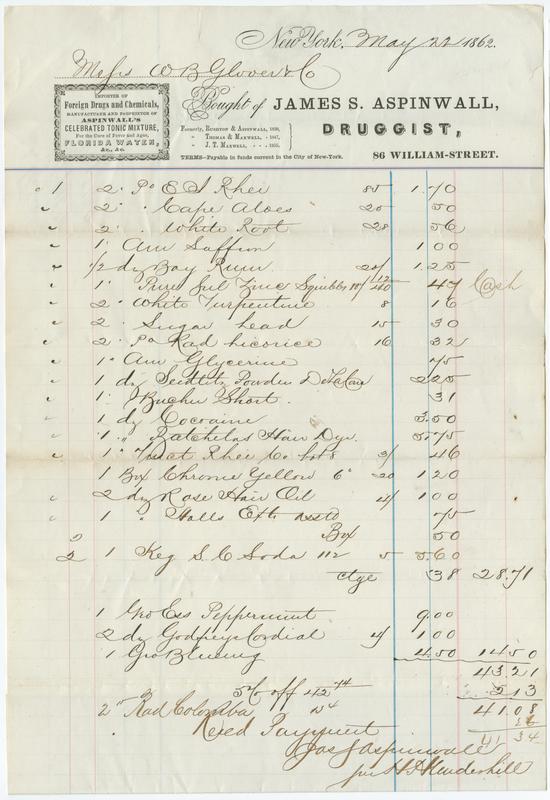 New York, May 22 1862.
Messrs W B Glover & Co
Bought of JAMES S. ASPINWALL,
DRUGGIST,
86 WILLIAM-STREET.
IMPORTER OF
Foreign Drugs and Chemicals,
MANUFACTURER AND PROPRIETOR OF
ASPINWALL'S
CELEBRATED TONIC MIXTURE,
For the Cure of Fever and Ague,
FLORIDA WATER,
&c., &c.
Formerly, RUSHTON & ASPINWALL, 1830,
" THOMAS & MAXWELL, - 1847,
" J. T. MAXWELL, - - - 1855.
TERMS—Payable in funds current in the City of New-York.
1 2 " Po E I Rhei 85 1.70
2 " Cape Aloes 25 50
2 " White Root 28 56
1 " Am Saffron 1 00
1/2 dz Bay Rum 1.25
1 " Pure Sul Zinc Squibbs 47 Cash
2 " White Turpentine 8 16
2 " Sugar Lead 15 30
2 " Po Rad Licorice 16 32
1 " Am Glycerine 75
1 dz Seidlitz Powders 2.25
1 " Buchu Short 31
1 dz Cocoaine 3.50
1 " " Batchelors Hair Dye 5.75
1 " Tinct Rhei Co bot 8 3/ 46
1 Box Chrome Yellow 6 " 20 1 20
2 dz Rose Hair Oil 4/ 1 00
1 " Halls Exts asstd 75
2 Box 50
2 1 Keg S. C Soda 112 5 5.60
ctge 38 28.71
1 Gro Ess Peppermint 9.00
2 dz Godfreys Cordial 4/ 1 00
1 Gro Blueing 4.50 14 50
43.21
5% off 42 74 2 13
41.08
2 " Rad Colomba
41 34
Recd Payment
Jas S Aspinwall
per